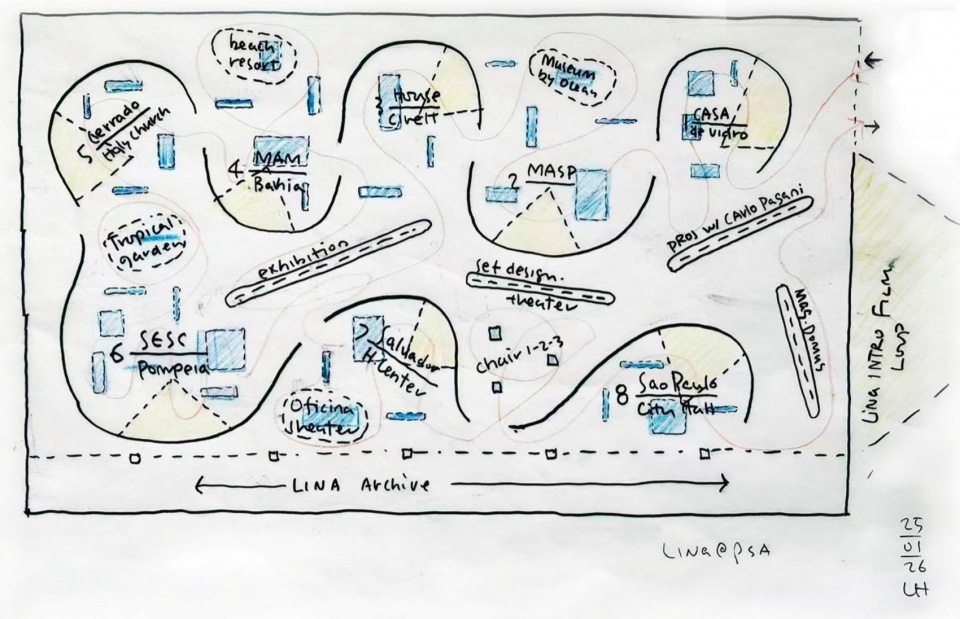 beach
resort
Museum
by ocean
3 House
Cirell
CASA
de vidro
5 Cerrado
Holy Church
4 MAM
Bahia
2 MASP
Tropical
garden
exhibition
set design.
theater
PROJ w/ CArlo PaGani
MAG. Domus
LinA INTRO FILM
Loop
6 SESC
Pompeia
7 Salvador
H. Center
chair 1-2-3
8 Sao Paulo
City Hall
Oficina
theater
LINA Archive
Lina@PSA
25
01
26
LH